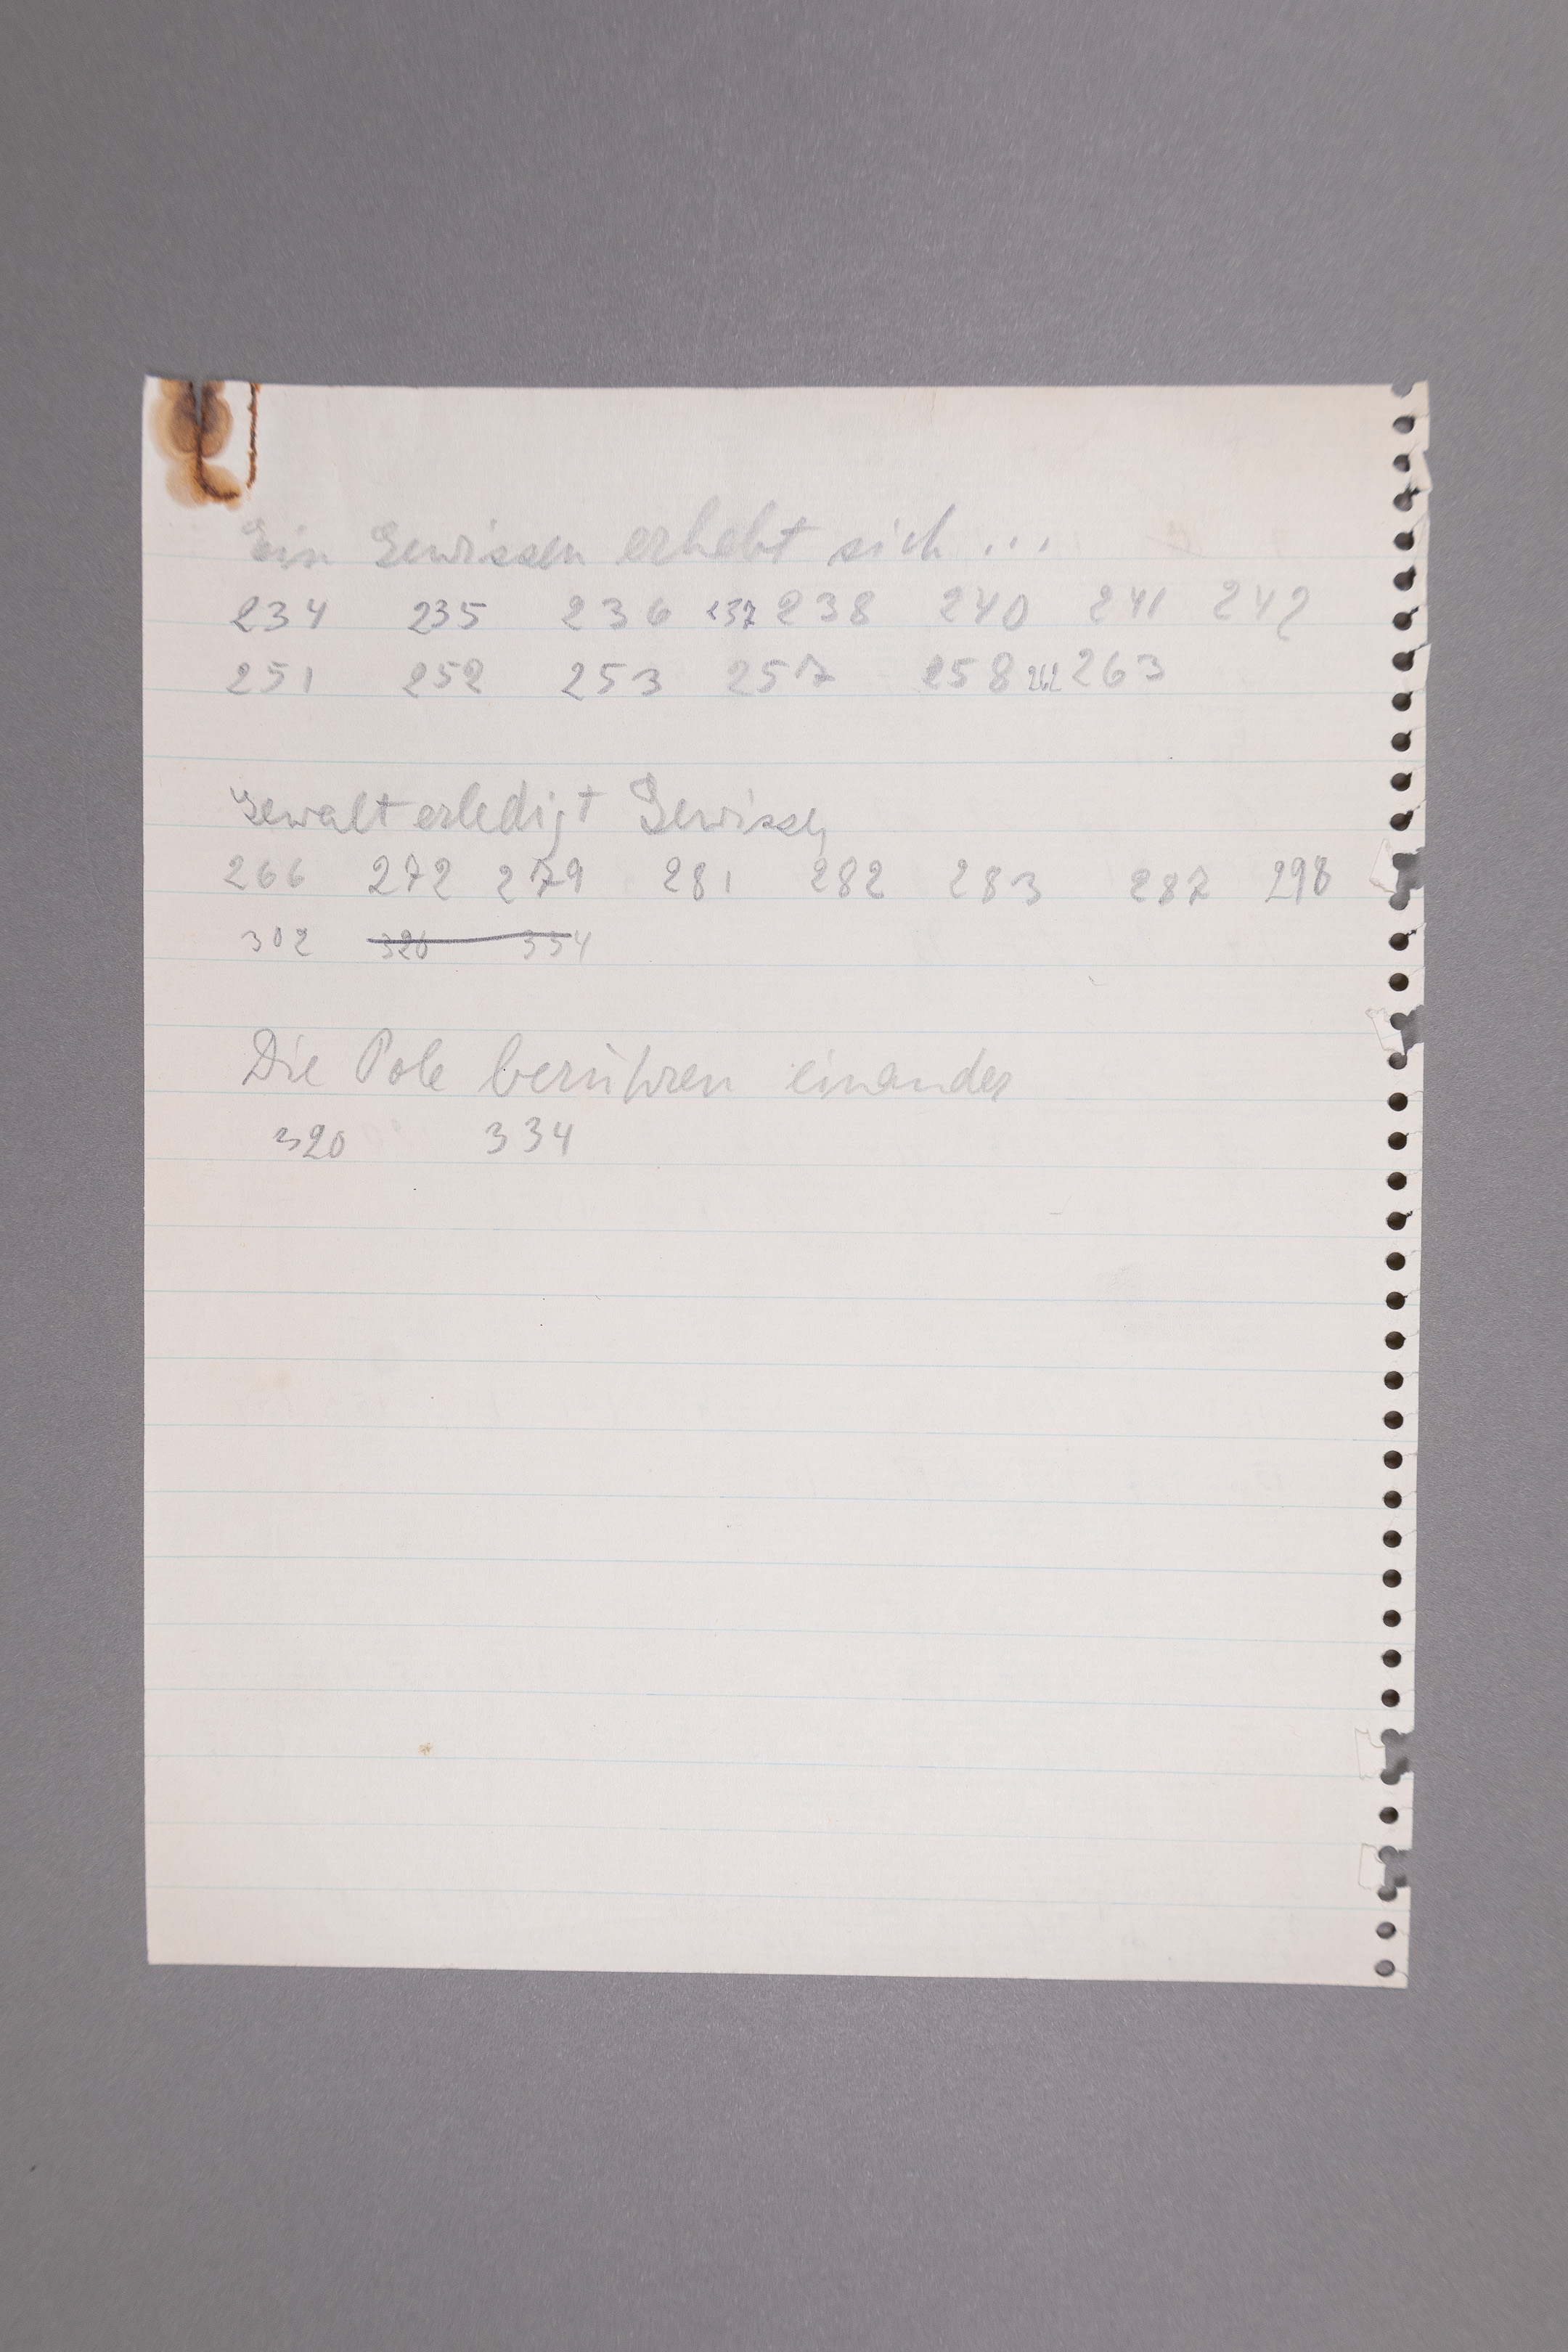 Ein Gewissen erhebt sich ...
234 235 236 237 238 240 241 242
251 252 253 257 258 262 263
Gewalt erledigt Gewissen
266 272 279 281 282 283 287 298
302 320 334
Die Pole berühren einander
320 334